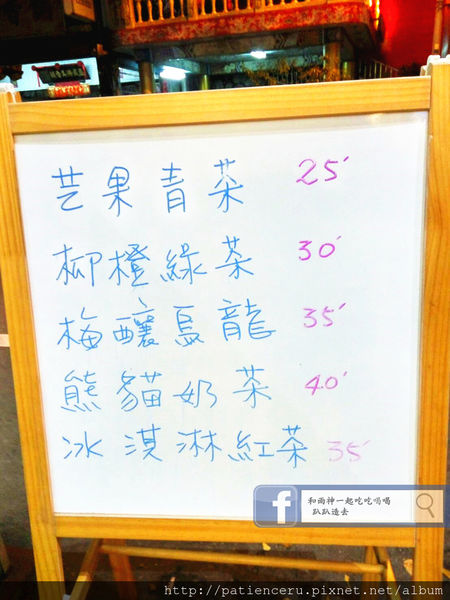 芒果青茶 25'
柳橙綠茶 30'
梅釀烏龍 35'
熊貓奶茶 40'
冰淇淋紅茶 35'
和雨神一起吃吃喝喝
趴趴造去
http://patienceru.pixnet.net/album